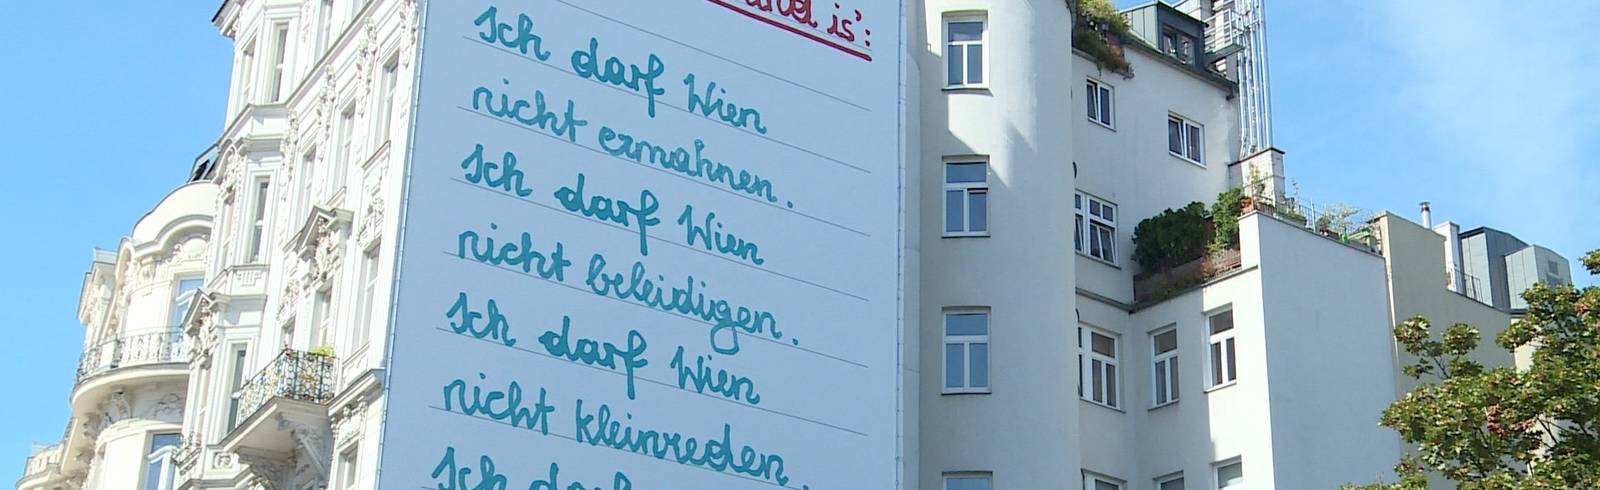 is':
Ich darf Wien
nicht ermahnen.
Ich darf Wien
nicht beleidigen.
Ich darf Wien
nicht kleinreden.
Ich darf